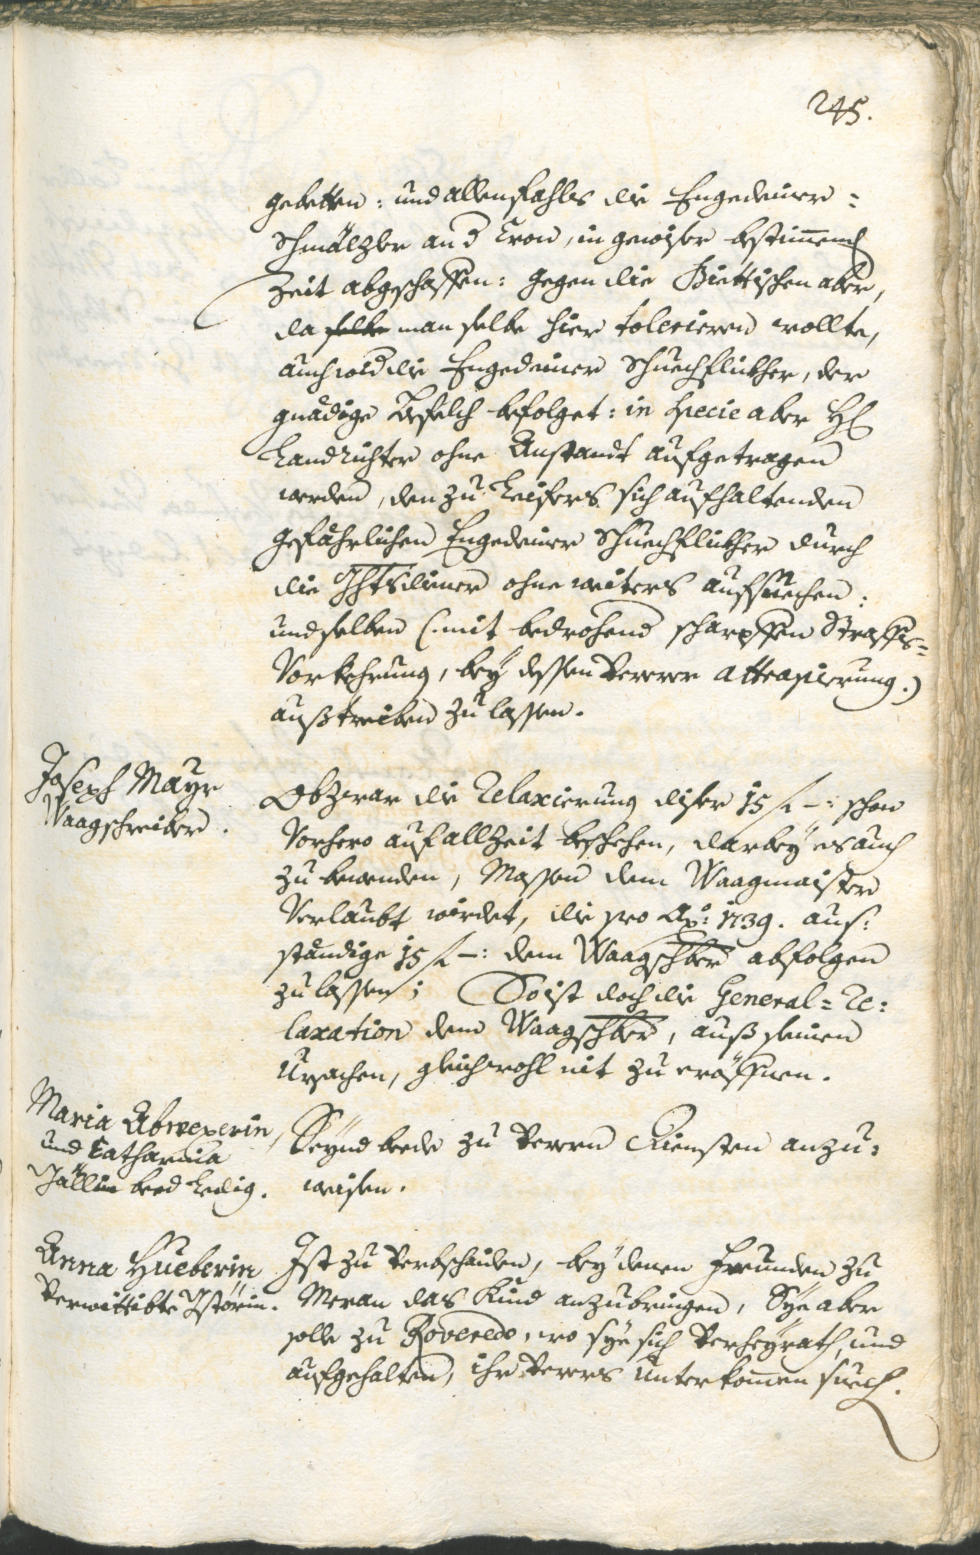 245.
gebetten: und allenfahls die Engedeiner=
Schmälzler and Cron, in gewiser bestimmend
Zeit abgeschaffen: gegen die aber,
da selbe man selbe hier toleriern wollte,
auch wid die Engedeiner Schuechflickher, der
gnädige Befelch befolget: in specie aber H
Landrichter ohne Anstandt aufgetragen
werden, den zu Leifers sich aufhaltenden
gefährlichen Engedeiner Schuechflickher durch
die ohne weiters aufsuechen:
und selben (: mit bedrohend scharpffen Straffs=
Vorkehrung, bey dessen attrapierung.)
außtreiben zu lassen.
Joseph Mayr
Waagschreiber.
Obzwar die Relaxierung diser 15 f –: schon
Vorhero auf allzeit beschehen, darbey es auch
zu bewenden, Massen dem Waagmaister
Verlaubt würdet, die pro Ao: 1739. aus:
ständige 15 f –: dem Waagschber abfolgen
zu lassen; So ist doch die General=Re:
laxation dem Waagschber, auß
Ursachen, gleichwohl nit zu eröffnen.
Maria Abwexerin,
und Catharina
Jällin beed Ledig.
Seynd beede zu Herrn Diensten anzu:
weisen.
Anna Hueberin
Verwittibte Istörin.
Ist zu verbschaiden, bey denen Freunden zu
Meran das Kind anzubringen, Sye aber
solle zu Roveredo, wo sye sich verheyrath, und
aufgehalten, ihr Unterkommen suech.